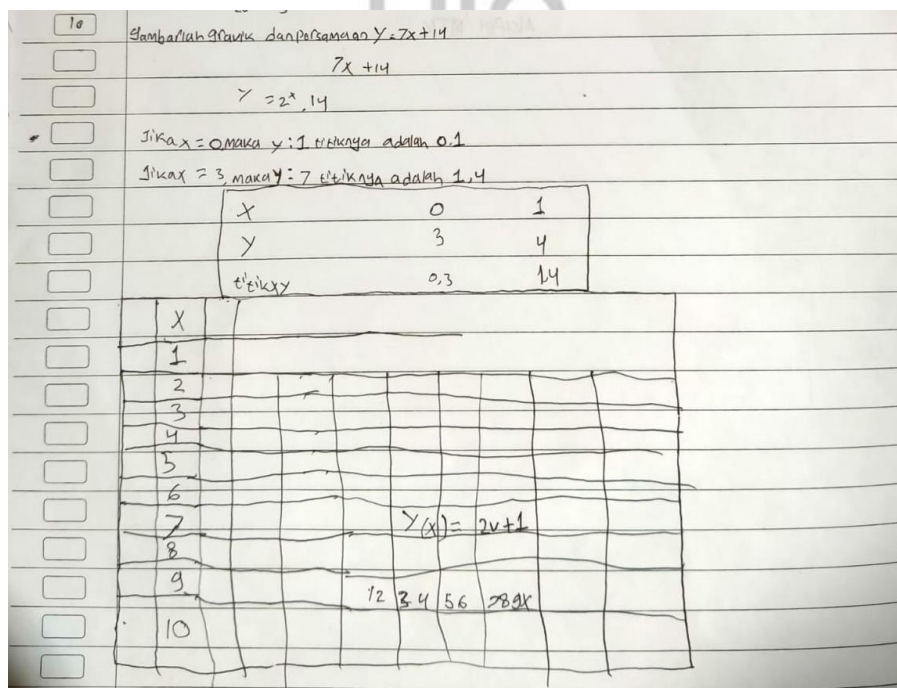 10
Gambarlah gravik dan persamaan Y = 7x+14
7x +14
Y = 2x, 14
Jika x = 0 maka y : 1 titiknya adalah 0.1
Jika x = 3, maka y : 7 titiknya adalah 1,4
X 0 1
Y 3 4
titik xy 0,3 14
X
1
2
3
4
5
6
7 Y(x) = 2v+1
8
9 12 34 56 789x
10